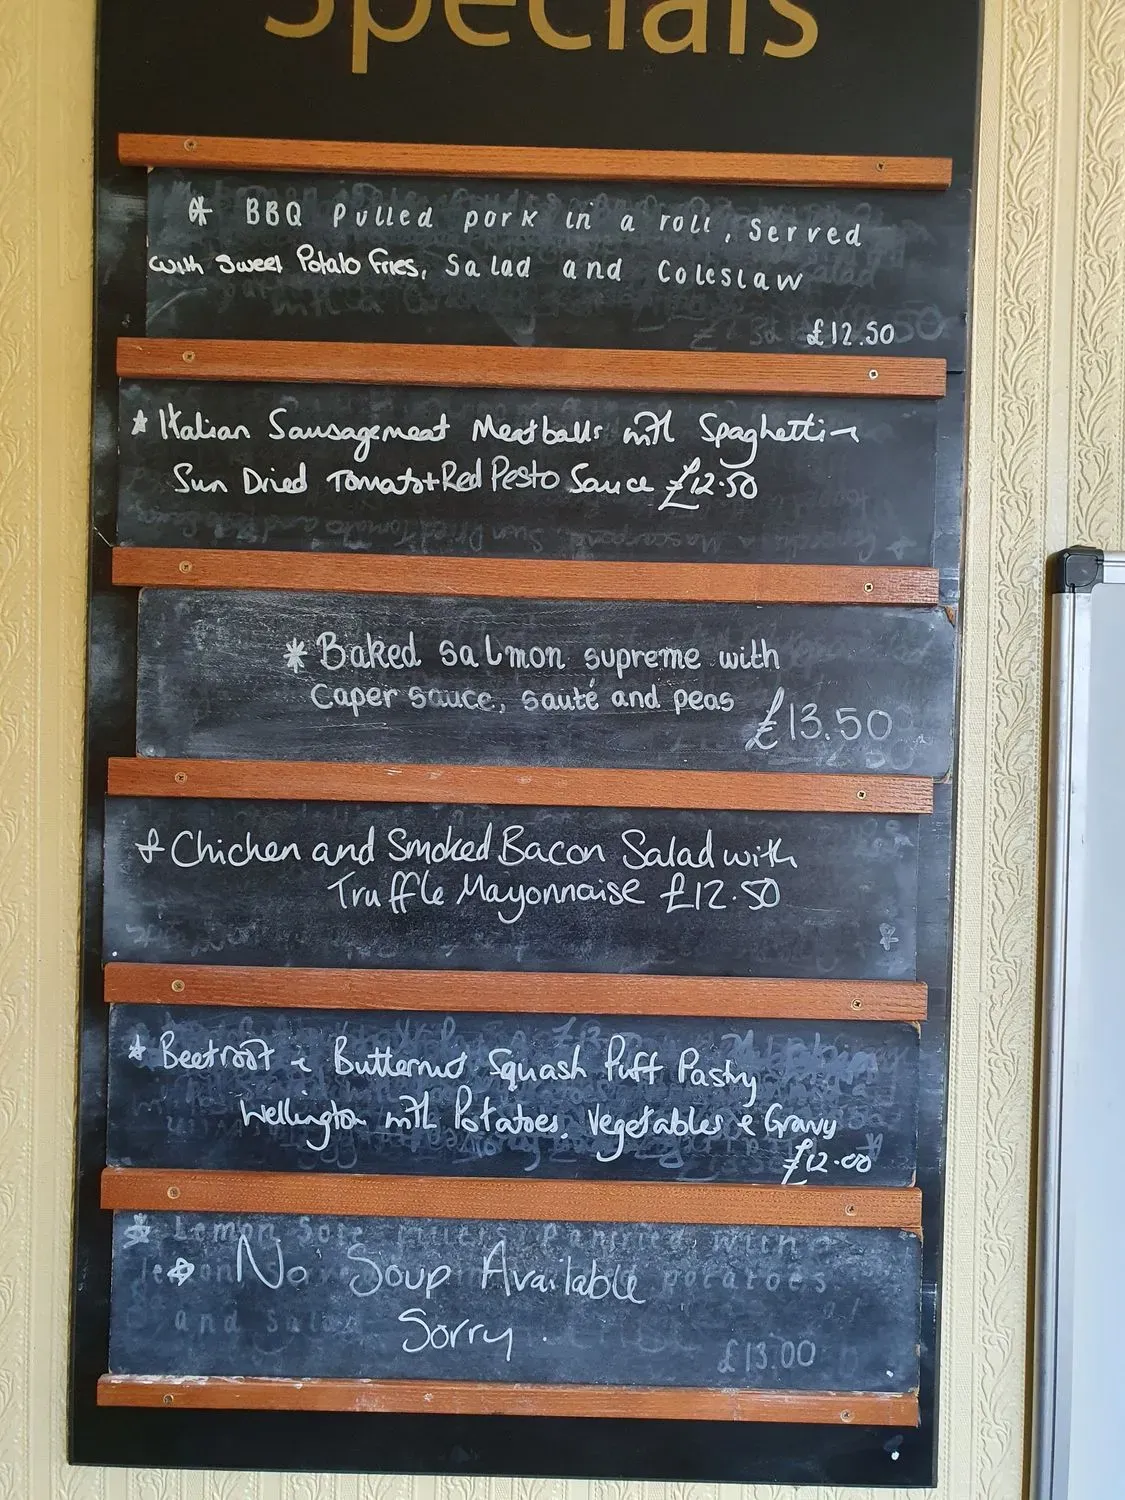 Specials
* BBQ Pulled pork in a roll, Served
with Sweet Potato Fries, Salad and Coleslaw
£12.50
* Italian Sausagemeat Meatballs with Spaghetti
Sun Dried Tomato + Red Pesto Sauce £12.50
* Baked salmon supreme with
caper sauce, sauté and peas
£13.50
* Chicken and Smoked Bacon Salad with
Truffle Mayonnaise £12.50
* Beetroot & Butternut Squash Puff Pastry
Wellington with Potatoes, Vegetables & Gravy
£12.00
* Lemon Sole
* No Soup Available
potatoes
and
Sorry.
£13.00